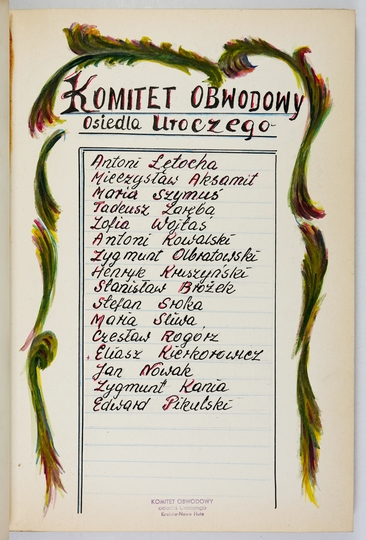 KOMITET OBWODOWY
Osiedla Uroczego
Antoni Lętocha
Mieczysław Aksamit
Maria Szymuś
Tadeusz Zaręba
Zofia Wojtas
Antoni Kowalski
Zygmunt Olbratowski
Henryk Kruszyński
Stanisław Brożek
Stefan Sroka
Maria Śliwa
Czesław Rogórz
Eliasz Kierkorowicz
Jan Nowak
Zygmunt Kania
Edward Pikulski
KOMITET OBWODOWY
Kraków-Nowa Huta